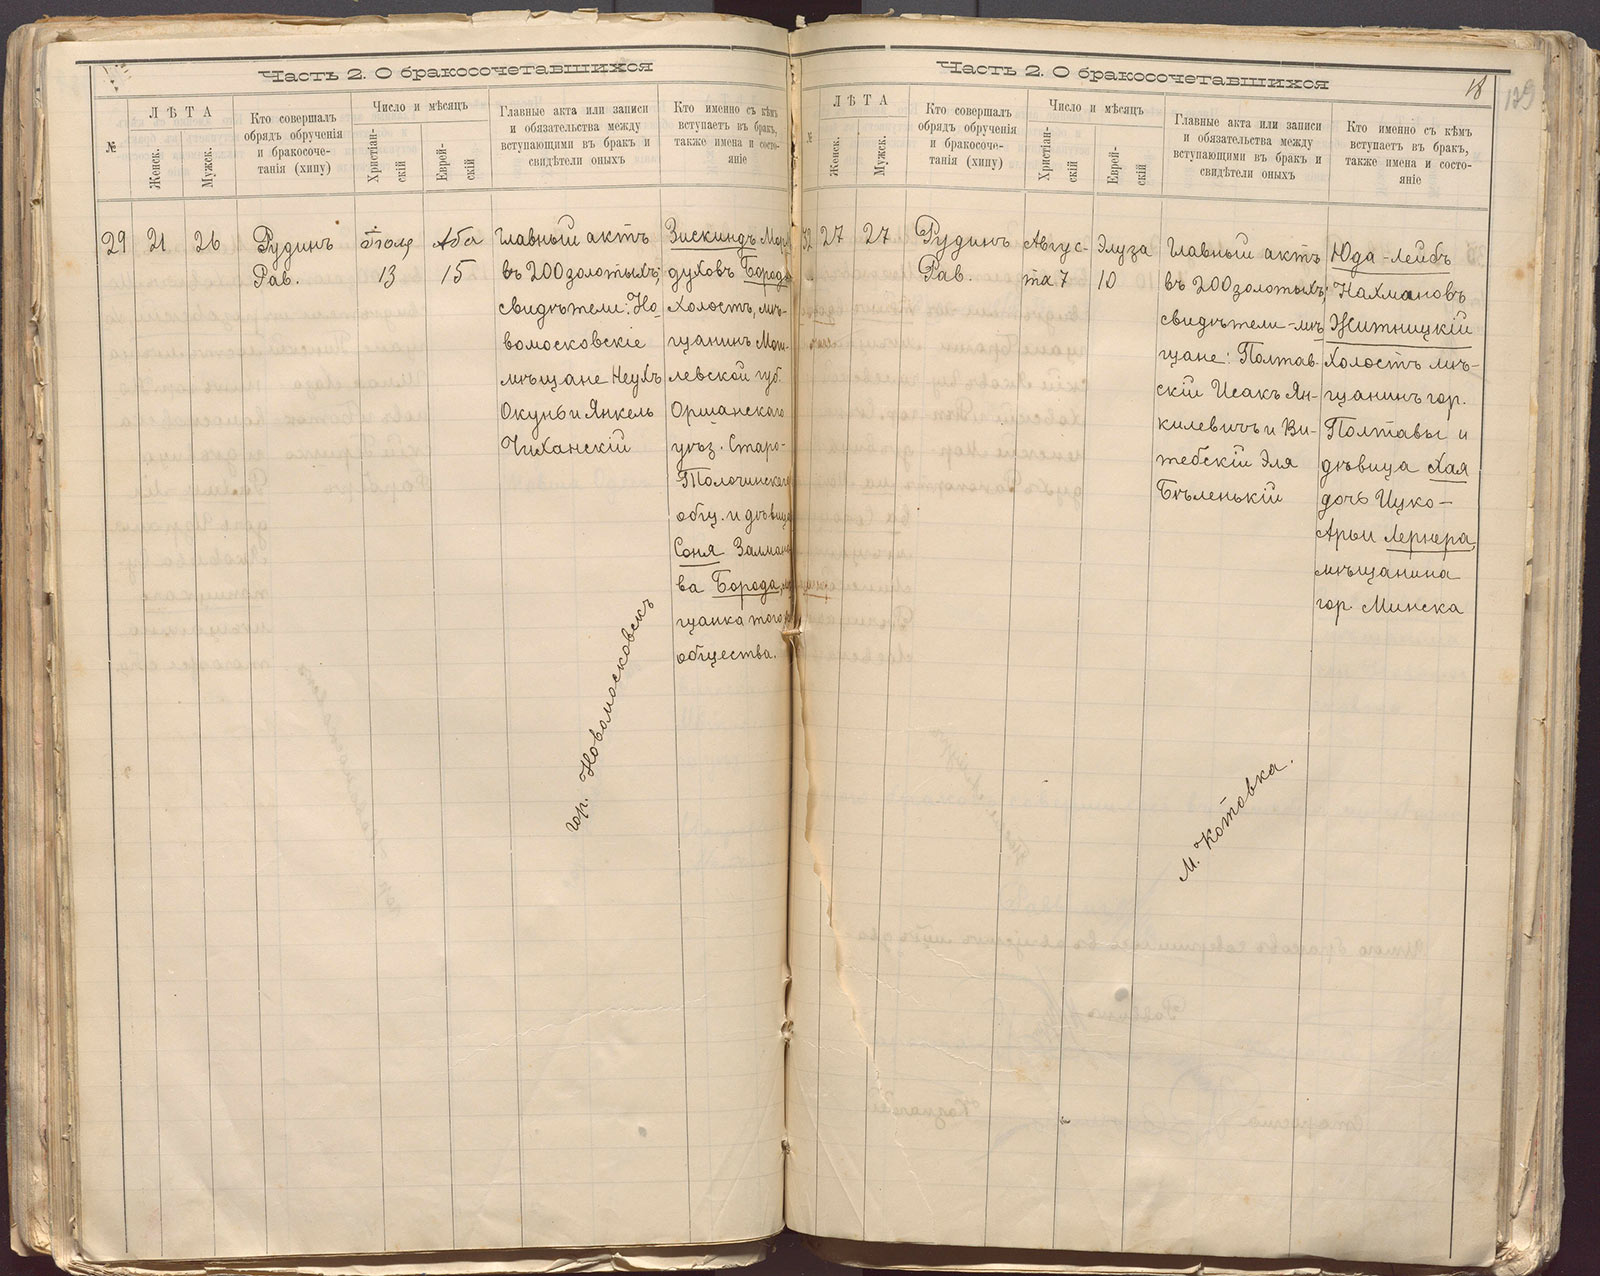 Часть 2. О бракосочетавшихся
№
ЛѢТА
Женск.
Мужск.
Кто совершалъ
обрядъ обрученія
и бракосоче-
танія (хипу)
Число и мѣсяцъ
Христіан-
скій
Еврей-
скій
Главные акта или записи
и обязательства между
вступающими въ бракъ и
свидѣтели оныхъ
Кто именно съ кѣмъ
вступаетъ въ бракъ,
также имена и состо-
яніе
29
21
26
Рудинъ
Рав.
Іюля
13
Аба
15
Главный актъ
въ 200 золотыхъ;
свидѣтели: Но-
вомосковскіе
мѣщане Неухъ
Окунь и Янкель
Чиханскій
Зискиндъ Мор
духовъ Борода
Холостъ, мѣ-
щанинъ Мог-
левской губ.
Оршанскаго
уѣз. Старо-
Толочинскаго
общ. и дѣвица
Соня Залмано
ва Борода, мѣ
щанка того
общества.
гор. Новомосковскъ
Часть 2. О бракосочетавшихся
18
129
№
ЛѢТА
Женск.
Мужск.
Кто совершалъ
обрядъ обрученія
и бракосоче-
танія (хипу)
Число и мѣсяцъ
Христіан-
скій
Еврей-
скій
Главные акта или записи
и обязательства между
вступающими въ бракъ и
свидѣтели оныхъ
Кто именно съ кѣмъ
вступаетъ въ бракъ,
также имена и состо-
яніе
32
27
27
Рудинъ
Рав.
Авгус-
та 7
Элуза
10
Главный актъ
въ 200 золотыхъ;
свидѣтели - мѣ
щане: Полтав-
скій Исакъ Ян-
килевичъ и Ви-
тебскій Эля
Бѣленькій
Юда-Лейбъ
Нахмановъ
Житницкій
Холостъ мѣ-
щанинъ гор.
Полтавы и
дѣвица Хая
дочь Ицко-
Арьи Лернера,
мѣщанина
гор. Минска
М. Котовка.